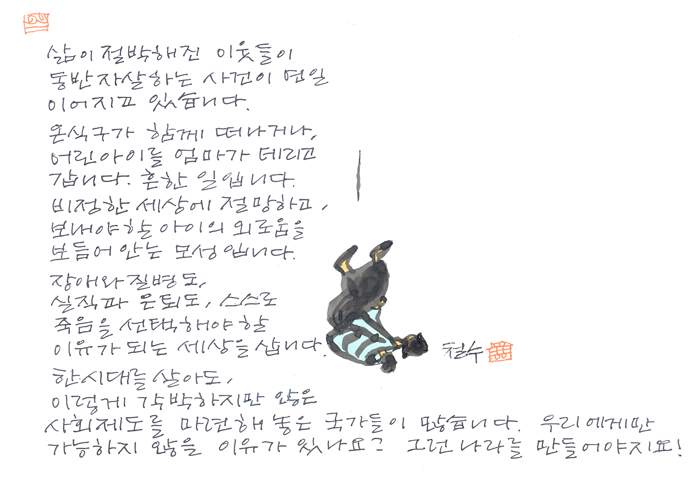 삶이 절박해진 이웃들이
동반자살하는 사건이 연일
이어지고 있습니다.
온식구가 함께 떠나거나,
어린아이를 엄마가 데리고
갑니다. 흔한 일입니다.
비정한 세상에 절망하고,
보내야할 아이의 외로움을
보듬어 안는 모성입니다.
장애와 질병도,
실직과 은퇴도, 스스로
죽음을 선택해야 할
이유가 되는 세상을 삽니다.
철수
한시대를 살아도,
이렇게 각박하지만 않은
사회제도를 마련해 놓은 국가들이 많습니다. 우리에게만
가능하지 않을 이유가 있나요? 그런 나라를 만들어야지요!